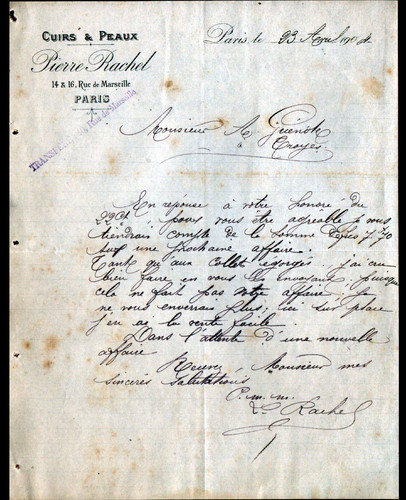 CUIRS & PEAUX
Pierre Rachel
14 & 16, Rue de Marseille
PARIS
Paris, le 23 Avril 1904
Rue de Marseille
Monsieur A. Guenot
à
Troyes
En réponse à votre honoré du
22 Ct pour vous être agréable je vous
tiendrais compte de la somme de
sur une prochaine affaire.
Tant qu aux Collet égorgés j'ai cru
bien faire en vous les envoyant, puisque
cela ne fait pas votre affaire je
ne vous enverrais plus; ici sur place
j'en ai la vente facile.
Dans l'attente d'une nouvelle
affaire
Recevez, Monsieur mes
sincères salutations
P. Rachel